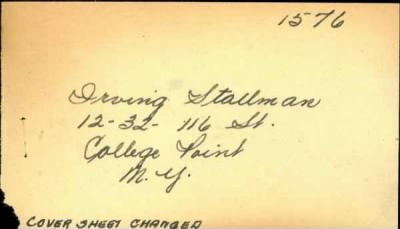 1576
Irving Stallman
12-32- 116 St.
College Point
N.Y.
COVER SHEET CHANGED